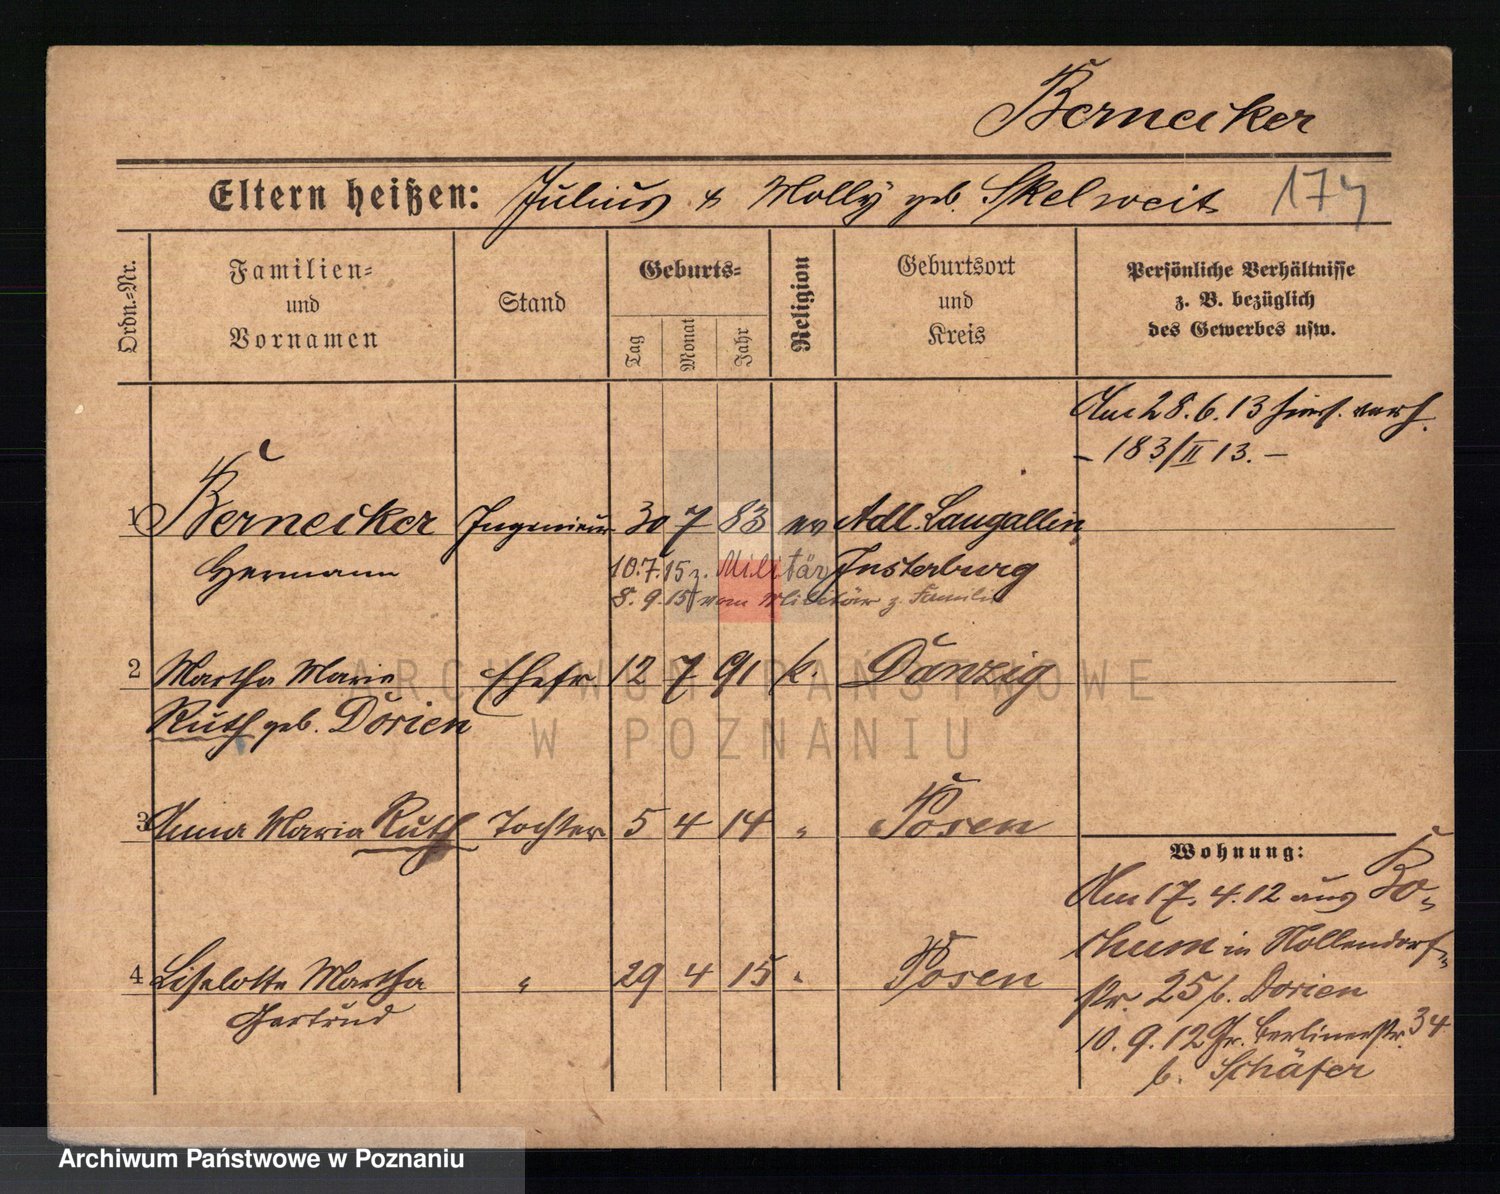 Bernecker
Eltern heißen: Julius & Molly geb. Skelweit 174
Ordn.-Nr.
Familien-
und
Vornamen
Stand
Geburts-
Tag
Monat
Jahr
Religion
Geburtsort
und
Kreis
Persönliche Verhältnisse
z. B. bezüglich
des Gewerbes usw.
Am 28.6.13 hies. verh.
- 183/II 13. -
1 Bernecker Ingenieur 30 7 83 ev Adl. Laugallen
Hermann 10.7.15 z. Militär Insterburg
8.9.15 vom Militär z. Familie
2 Martha Marie Ehefr. 12 7 91 k. Danzig
Ruth geb. Dorien
3 Anna Maria Ruth Tochter 5 4 14 " Posen
4 Liselotte Martha " 29 4 15 " Posen
Gertrud
Wohnung:
Am 17.4.12 aus Bo-
chum in Nollendorf-
str. 25 b. Dorien
10.9.12 Gr. Berlinerstr. 34
b. Schäfer
ARCHIWUM PAŃSTWOWE
W POZNANIU
Archiwum Państwowe w Poznaniu